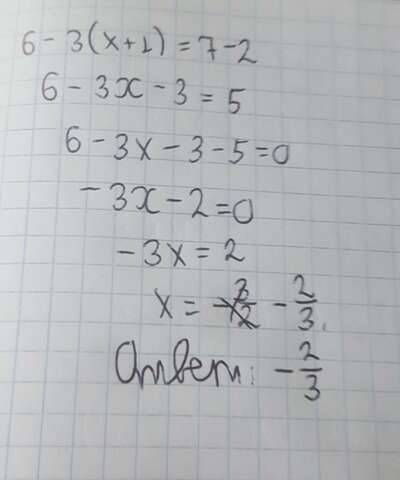 6 - 3(x+1) = 7-2
6 - 3x - 3 = 5
6 - 3x - 3 - 5 = 0
-3x - 2 = 0
-3x = 2
x = -2/3.
Ответ: -2/3